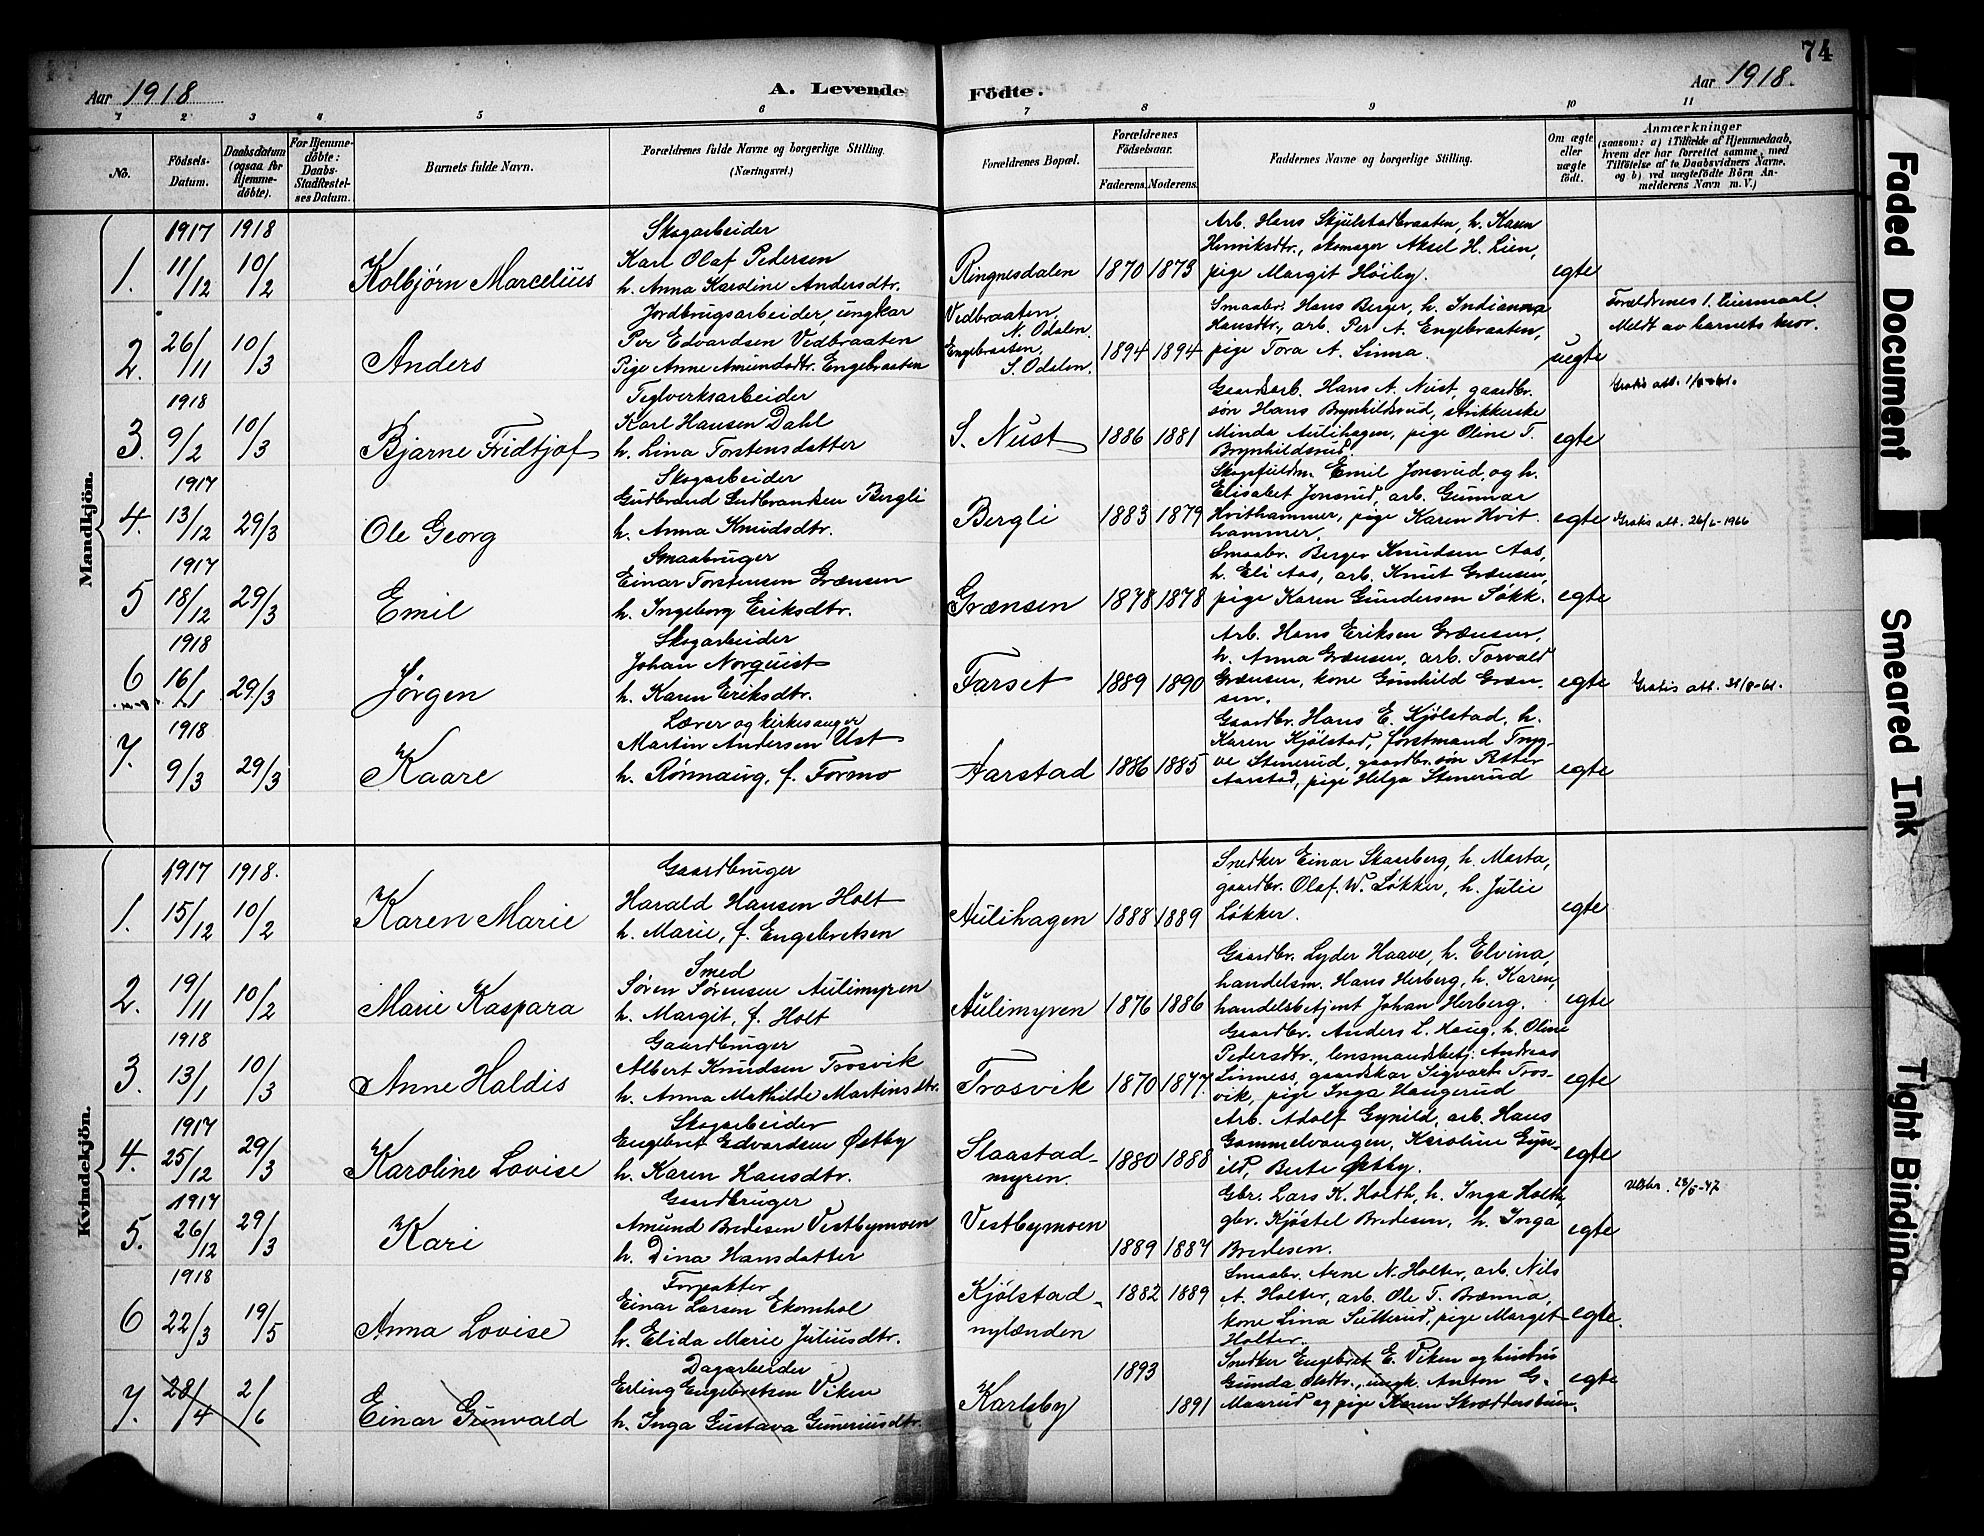 74
Aar 1918 A. Levende Födte. Aar 1918.
1 2 3 4 5 6 7 8 9 10 11
No.
Födsels-Datum.
Daabsdatum (ogsaa for Hjemmedöbte).
For Hjemmedöbte: Daabs-Stadfæstelses Datum.
Barnets fulde Navn.
Forældrenes fulde Navne og borgerlige Stilling. (Næringsvei.)
Forældrenes Bopæl.
Forældrenes Födselsaar.
Faderens. Moderens.
Faddernes Navne og borgerlige Stilling.
Om ægte eller uægte födt.
Anmærkninger
(saasom: a) i Tilfælde af Hjemmedaab, hvem der har forrettet samme, med Tilföielse af to Daabsvidners Navne, og b) ved uægtefödte Börn Anmelderens Navn m. V.)
Mandkjön.
1917 1918
1. 11/12 10/2 Kolbjørn Marcelius
Skogarbeider
Karl Olaf Pedersen
h. Anna Karoline Andersdtr.
Ringnesdalen 1870 1873
Arb. Hans Skjulstadbraaten, h. Karen
Henriksdtr., skomager Aksel H. Lien,
pige Margit Høiby.
egte
2. 26/11 10/3 Anders
Jordbrugsarbeider, ungkar
Per Edvardsen Vedbraaten
Pige Anne Amundsdtr. Engebraaten
Vedbraaten,
N. Odalen.
Engebraaten,
S. Odalen.
1894 1894
Smaabr. Hans Berger, h. Indianna
Hansdtr., arb. Per A. Engebraaten,
pige Tora A. Linna.
uegte
Forældrenes 1. leiermaal.
Meldt av barnets mor.
1918
3. 9/2 10/3 Bjarne Fridtjof
Teglverksarbeider
Karl Hansen Dahl
h. Lina Torstensdatter
S. Nust 1886 1881
Gaardsarb. Hans A. Nust, gaardbr.
søn Hans Brynhildsrud, strikkerske
Minda Aulihagen, pige Oline T.
Brynhildsrud.
egte
Gratis att.
1917
4. 13/12 29/3 Ole Georg
Skogarbeider
Gudbrand Gudbrandsen Bergli
h. Anna Knudsdtr.
Bergli 1883 1879
Emil Jonsrud, og h.
Elisabet Jonsrud, arb. Gunnar
Hvithammer, pige Karen Hvit-
hammer.
egte
Gratis att. 26/6-1966
1917
5 18/12 29/3 Emil
Smaabruger
Einar Torstensen Grænsen
h. Ingeborg Eriksdtr.
Grænsen 1878 1878
Smaabr. Berger Knudsen Aas,
h. Eli Aas, arb. Knut Grænsen,
pige Karen Gundersen Søkk.
egte
1918
6 16/1 29/3 Jørgen
Skogarbeider
Johan Norquist
h. Karen Eriksdtr.
Farset 1889 1890
Arb. Hans Eriksen Grænsen,
h. Anna Grænsen, arb. Torvald
Grænsen, kone Gunhild Græn-
sen.
egte
Gratis att. 31/8-61.
1918
7. 9/3 29/3 Kaare
Lærer og kirkesanger
Martin Andersen Ust
h. Rønnaug, f. Formo
Aarstad 1886 1885
Gaardbr. Hans E. Kjølstad, h.
Karen Kjølstad, forstmand Tryg-
ve Stenerud, gaardbr.søn Petter
Aarstad, pige Helga Stenerud
egte
Kvindekjön.
1917 1918.
1. 15/12 10/2 Karen Marie
Gaardbruger
Harald Hansen Holt
h. Marie, f. Engebretsen
Aulihagen 1888 1889
Snedker Einar Skaarberg, h. Marta,
gaardbr. Olaf W. Løkker, h. Julie
Løkker.
egte
2. 19/11 10/2 Marie Kaspara
Smed
Søren Sørensen Aulimyren
h. Margit, f. Holt
Aulimyren 1876 1886
Gaardbr. Lyder Haave, h. Elvina,
handelsm. Hans Herberg, h. Karen,
handelsbetjent Johan Herberg.
egte
1918
3. 13/1 10/3 Anne Haldis
Gaardbruger
Albert Knudsen Trosvik
h. Anna Mathilde Martinsdtr.
Trosvik 1870 1877.
Gaardbr. Anders L. Haug, h. Oline
Pedersdtr., lensmandsbetj. Andreas
Linness, gaardskar Sigvart Tros-
vik, pige Inga Haugerud
egte
1917
4. 25/12 29/3 Karoline Lovise
Skogarbeider
Engebret Edvardsen Østby
h. Karen Hansdtr.
Slaastad-
myren.
1880 1888
Arb. Adolf Gynild, arb. Hans
Gammelvangen, Karoline Gyn-
ild, Berte Østby.
egte
1917
5. 26/12 29/3 Kari
Gaardbruger
Amund Bredesen Vestbymoen
h. Dina Hansdatter
Vestbymoen 1889 1887
Gbr. Lars K. Holth, h. Inga Holth,
gbr. Kjøstel Bredesen, h. Inga
Bredesen.
egte
28/5-47
1918
6 22/3 19/5 Anna Lovise
Forpakter
Einar Larsen Ekornhol
h. Elida Marie Juliusdtr.
Kjølstad-
nylænden
1882 1889
Smaabr. Arne N. Holter, arb. Nils
A. Holter, arb. Ole T. Brænna,
kone Lina Sætterud, pige Margit
Holter.
egte.
7. 28/4 2/6 Einar Gunvald
Dagarbeider
Erling Engebretsen Viken
h. Inga Gustava Guneriusdtr.
Karlsby 1893 1891
Snedker Engebret E. Viken og hustru
Gunda Olsdtr., ungk. Anton G.
Maarud og pige Karen Skrædderstuen.
egte
Faded Document
Smeared Ink
Tight Binding